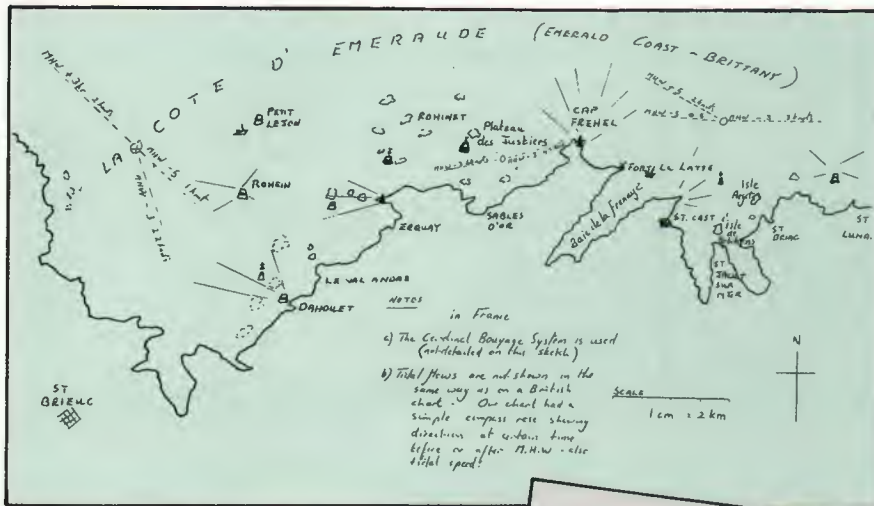 LA COTE D' EMERAUDE (EMERALD COAST - BRITTANY)
PETIT
LEJON
ROHEIN
ROHINET
Plateau
des Justiers
CAP
FREHEL
FORT LA LATTE
Baie de la Frenaye
ST. CAST
Isle
ST
BRIAC
ST
LUNA.
ST
JACUT
SUR
MER
ERQUAY
SABLES
D'OR
LE VAL ANDRE
DAHOUET
ST
BRIEUC
NOTES
in France
a) The Cardinal Bouyage System is used
(not detailed on this sketch)
b) Tidal flows are not shown in the
same way as on a British
chart. Our chart had a
simple compass rose showing
directions at certain time
before or after M.H.W - also
tidal speed!
N
SCALE
1 cm = 2 km